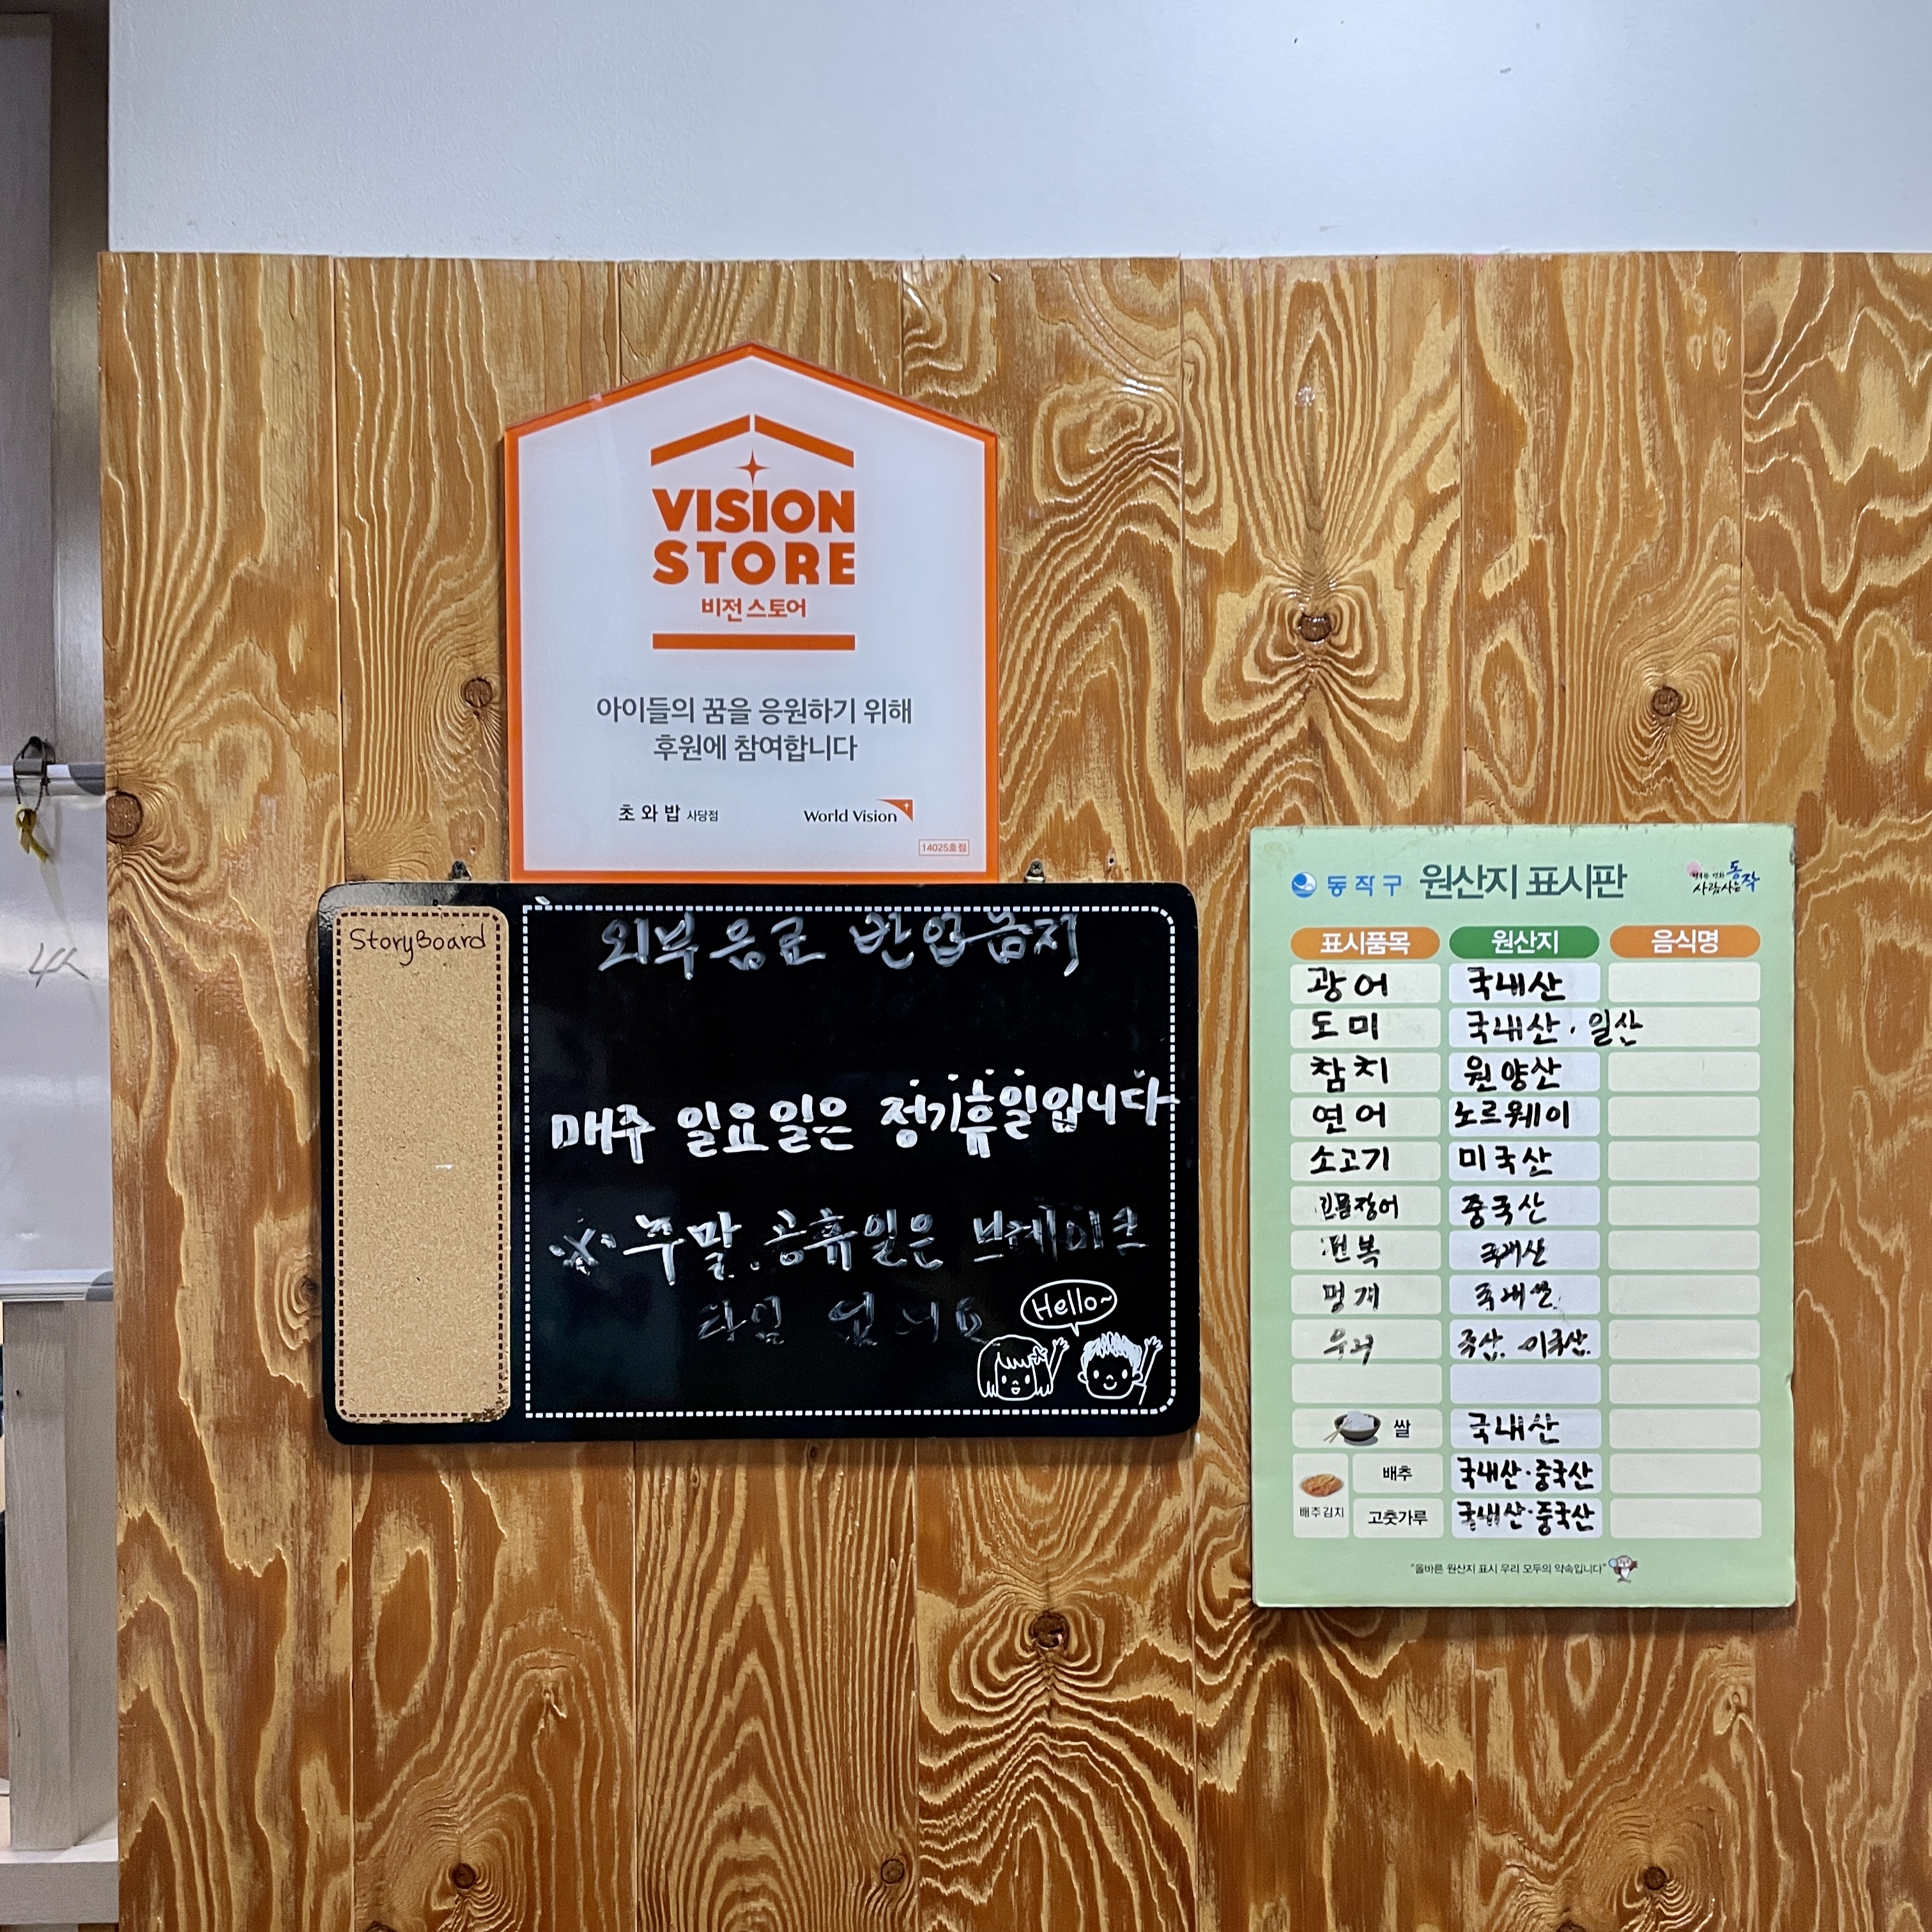 VISION
STORE
비전 스토어
아이들의 꿈을 응원하기 위해
후원에 참여합니다
초와밥 사당점 World Vision
14025호점
StoryBoard
외부 음료 반입금지
매주 일요일은 정기휴일입니다
※ 주말.공휴일은 브레이크
타임 없어요
Hello~
동작구 원산지 표시판 사람사는 동작
표시품목 원산지 음식명
광어 국내산
도미 국내산·일산
참치 원양산
연어 노르웨이
소고기 미국산
민물장어 중국산
전복 국내산
멍게 국내산
쌀 국내산
배추김치
배추 국내산·중국산
고춧가루 국내산·중국산
"올바른 원산지 표시 우리 모두의 약속입니다"